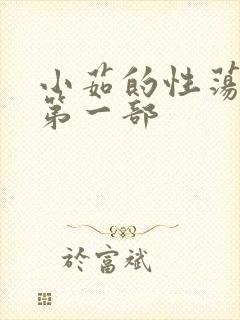 小茹的性荡
第一部
於富斌